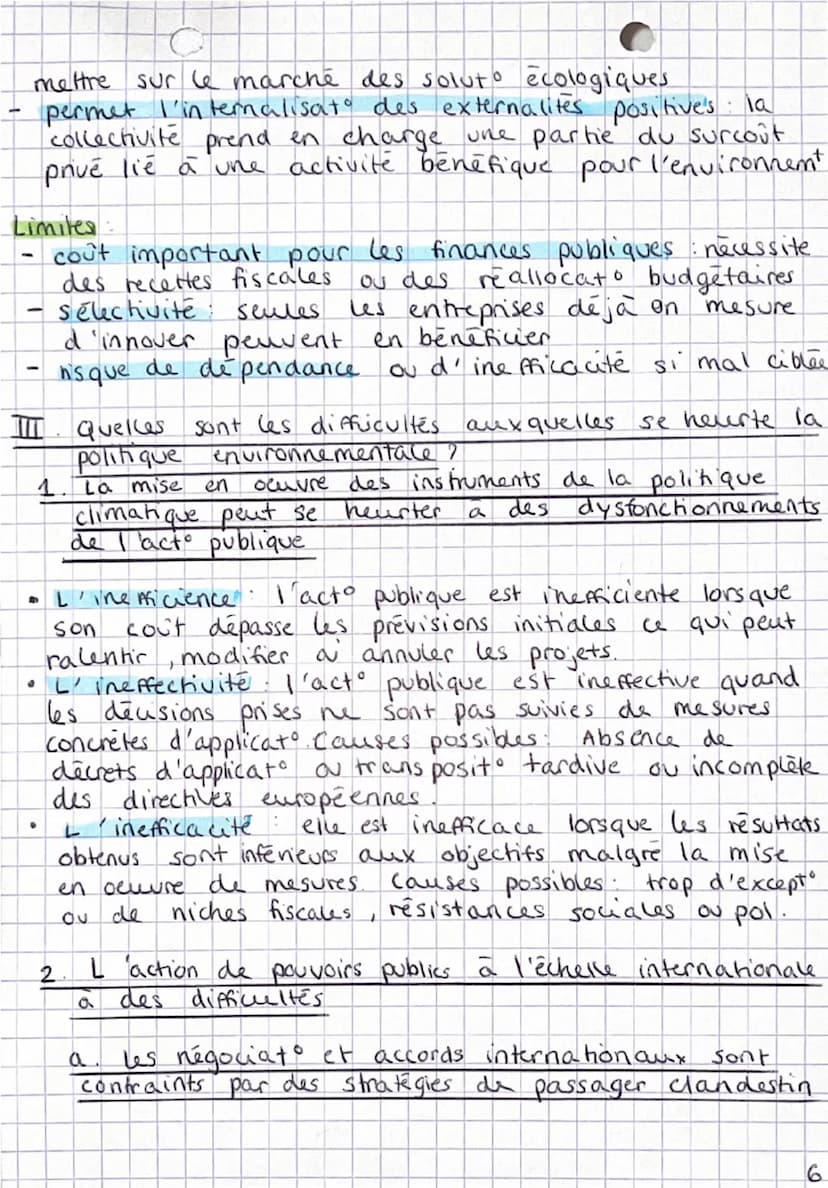 mettre sur le marché des solut° écologiques
- permet l'internalisat° des externalités positives : la
collectivité prend en charge une partie du surcoût
privé lié à une activité bénéfique pour l'environnemt
Limites :
- coût important pour les finances publiques : nécessite
des recettes fiscales ou des réallocat° budgétaires
- sélectivité : seules les entreprises déjà en mesure
d'innover peuvent en bénéficier
- risque de dépendance ou d'inefficacité si mal ciblée
III. Quelles sont les difficultés auxquelles se heurte la
politique environnementale ?
1. La mise en oeuvre des instruments de la politique
climatique peut se heurter à des dysfonctionnements
de l'act° publique
• L'inefficience : l'act° publique est inefficiente lorsque
son coût dépasse les prévisions initiales ce qui peut
ralentir, modifier ou annuler les projets.
• L'ineffectivité : l'act° publique est ineffective quand
les décisions prises ne sont pas suivies de mesures
concrètes d'applicat°. Causes possibles : Absence de
décrets d'applicat° ou transposit° tardive ou incomplète
des directives européennes.
• L'inefficacité : elle est inefficace lorsque les résultats
obtenus sont inférieurs aux objectifs malgré la mise
en oeuvre de mesures. Causes possibles : trop d'except°
ou de niches fiscales, résistances sociales ou pol.
2. L'action de pouvoirs publics à l'échelle internationale
à des difficultés
a. les négociat° et accords internationaux sont
contraints par des stratégies de passager clandestin
6